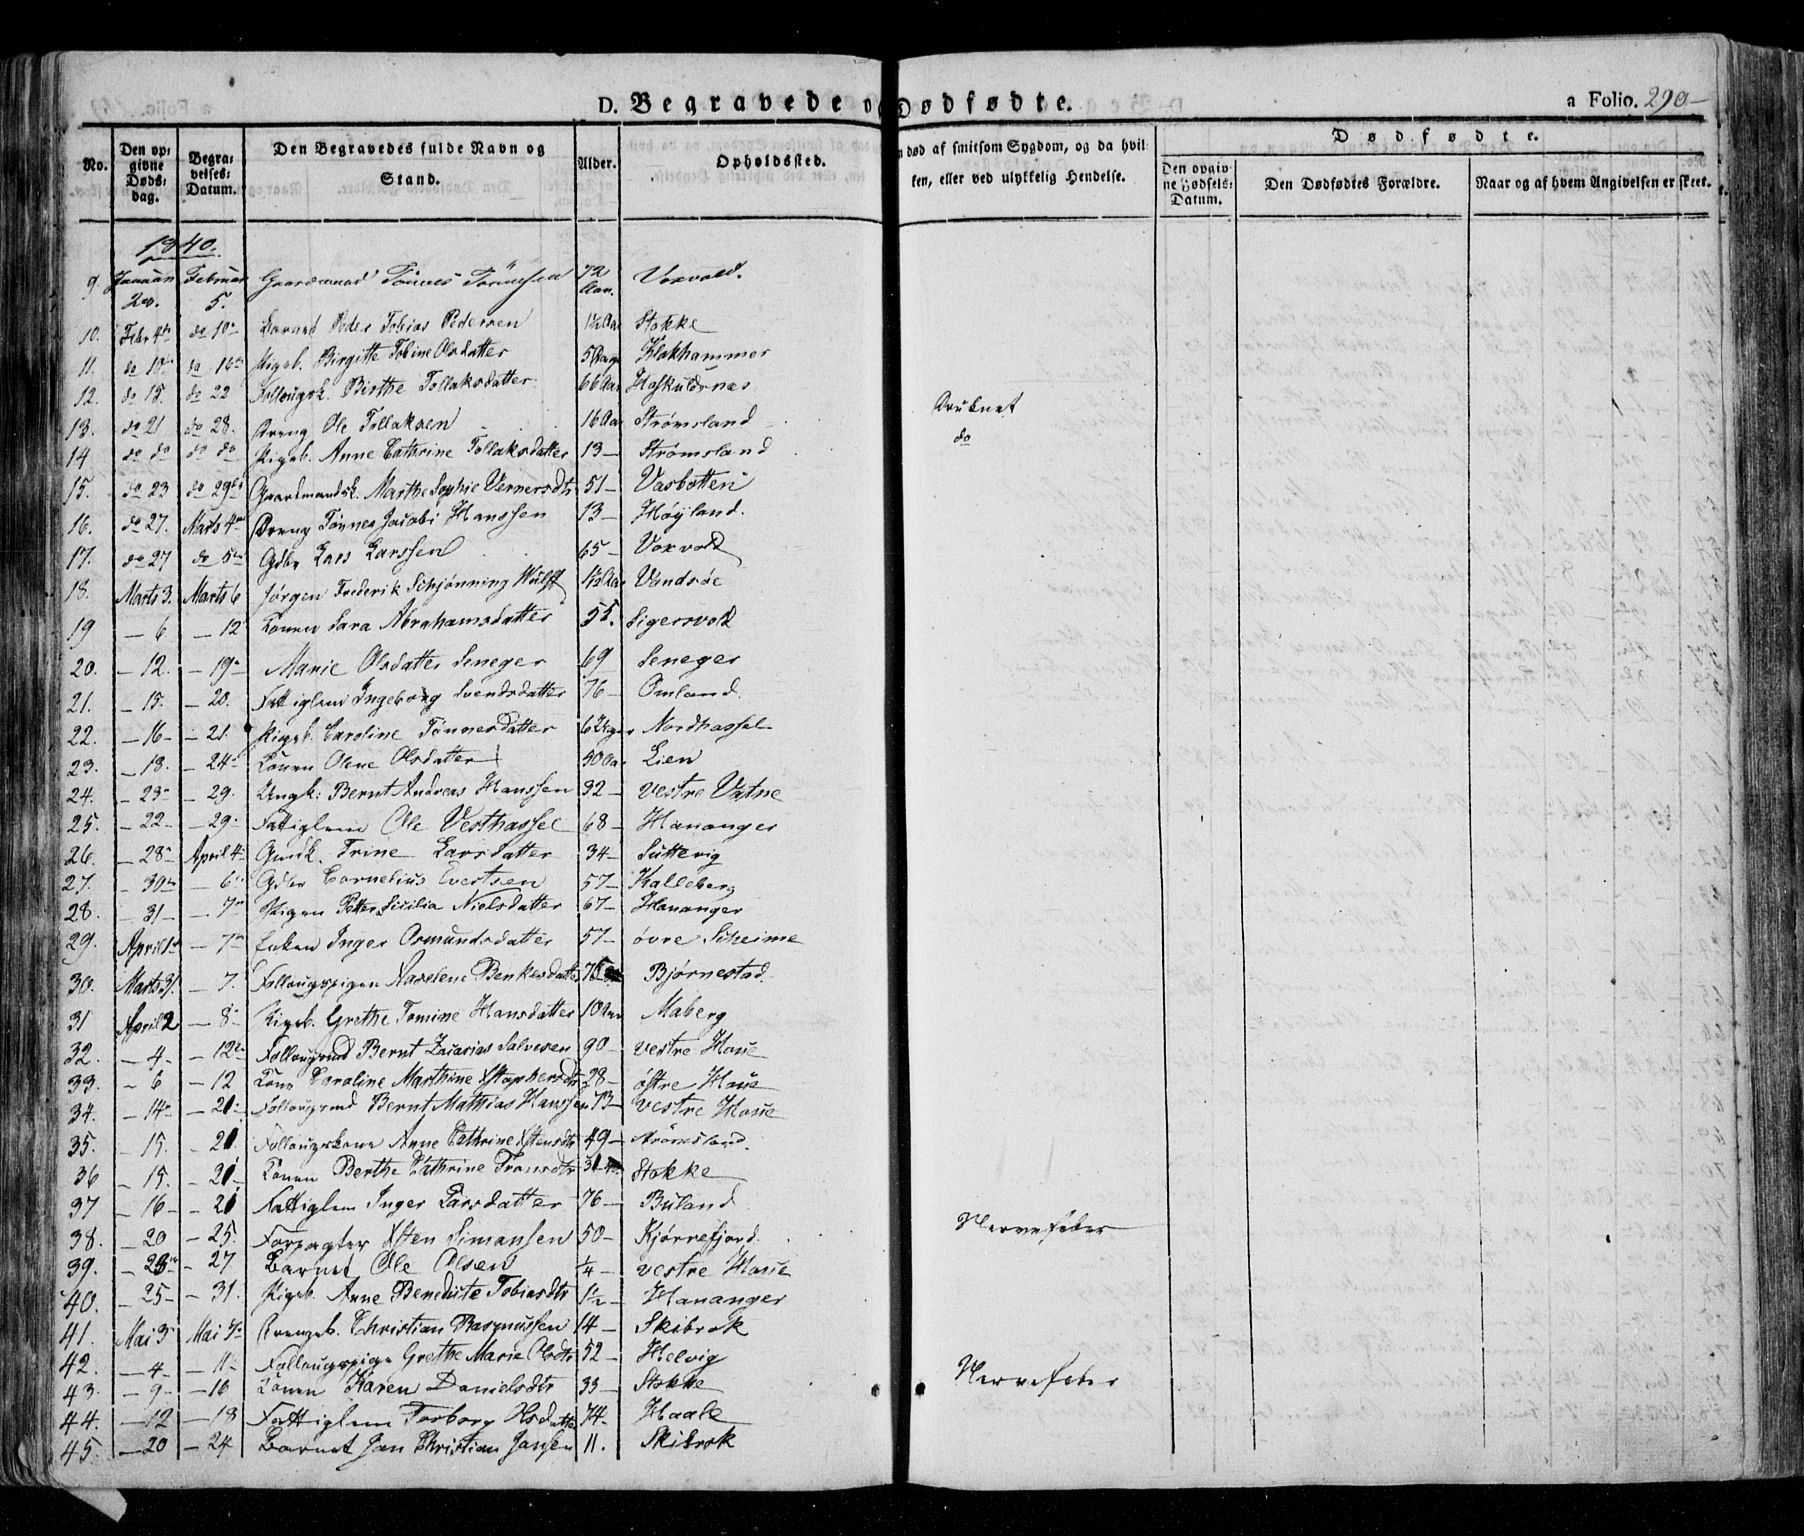 D. Begravede o Dødfødte.
a Folio. 290
No. Den opgivne Dødsdag. Begravelses-Datum. Den Begravedes fulde Navn og Stand. Alder. Opholdssted. n død af smitsom Sygdom, og da hvilken, eller ved ulykkelig Hendelse. Dødfødte. Den opgivne Fødsels-Datum. Den Dødfødtes Forældre. Naar og af hvem Angivelsen er skeet.
1840.
9. Januar 20. Februar 5. Gaardmand Tönnes Tönnesen 72 Aar. Voxvold.
10. Febr 4 do 10 Barnet Peder Tobias Pedersen 1½ Aar Stokke
11. do 10 do 16 Pigeb. Birgitte Tobine Olsdatter 5 Klokhammer
12. do 15. do 22 Follaugsk. Birthe Tollaksdatter 66 Aar Haskuldsnes
13. do 21 do 28. Dreng Ole Tollaksen 16 Aar Strømsland Druknet
14 do do do do Pigeb. Anne Cathrine Tollaksdatter 13 — Strømsland do
15. do 23 do 29 Gaardmandsk. Marthe Sophie Vernersdtr 51 — Vasbotten
16. do 27. Marts 4 Dreng Tönnes Jacobi Hanssen 13 — Høyland.
17. do 27 do 5 Gdbr Lars Larssen 65 — Voxvold
18. Marts 3. Marts 6 Jørgen Frederik Schjønning Wulff 1½ Aar Vandsøe
19 — 6 — 12 Konen Sara Abrahamsdatter 55. Sigersvold
20. — 12. — 19 Marie Olsdatter Seneger 69 Seneger
21. — 15. — 20. Fattiglem Ingeborg Svendsdatter 76 — Omland.
22. — 16 — — 21. Pigeb. Caroline Tönnesdatter 6 Nordhassel
23. — 18. — 24 Konen Olene Olsdatter 50 Aar Lien
24. — 23 — 29. Ungk. Bernt Andreas Hanssen 32 — vestre Vatne
25. — 22 — 29. Fattiglem Ole Vesthassel 68 — Hananger
26. — 28 April 4 Gmdk. Trine Larsdatter 34 — Suttevig
27. — 30 — 6 Gdbr Cornelius Evertsen 57 — Kalleberg
28. — 31 — — 7 Pigen Petter Sicilia Nielsdatter 67 — Hananger
29. April 1 — 7 Enken Inger Osmundsdatter 57 — øvre Skeime
30. Marts 31. — 7. Follaugspigen Axelene Benkesdatter 75 Bjørnestad
31 April 2 — 8 Pigeb. Grethe Tomine Hansdatter 10 Aar Maberg
32. — 4 — — 12 Follaugmd Bernt Zacarias Salvesen 90 — vestre Haue
33. — 6 — 12 Kone Caroline Marthine Xstophersdtr 28 — østre Haue
34. — 14 — 20 Follaugmd Bernt Mathias Hanssen 73 — vestre Haue
35. — 15. — 20. Follaugskone Anne Cathrine Xstensdtr 49 — Strömsland.
36 — 15. — 20 Konen Berthe Cathrine Tronsdtr 31 Stokke
37 — 16 — — 20 Fattiglem Inger Larsdatter 76 — Büland
38. — 20 — 25. Forpagter Xsten Simonsen 50 — Kjørrefjord. Nervefeber
39. — 23 — 27 Barnet Ole Olsen ¼ — vestre Haue
40. — 25 — — 31. Pigeb. Anne Bendicte Tobiasdtr 1½ — Hananger
41. Mai 3 Mai 7 Drengeb. Christian Rasmussen 14 — Skibrok
42. — 4 — — 11 — Follaugspige Grethe Marie Olsdtr 52 — Helvig
43. — 9 — — 16 Konen Karen Danielsdtr 33 — Stokke Nervefeber
44. — 12 — 18 Fattiglem Torborg Olsdatter 74. Haale
45. — 20 — 24 Barnet Jan Christian Jansen 11. Skibrok